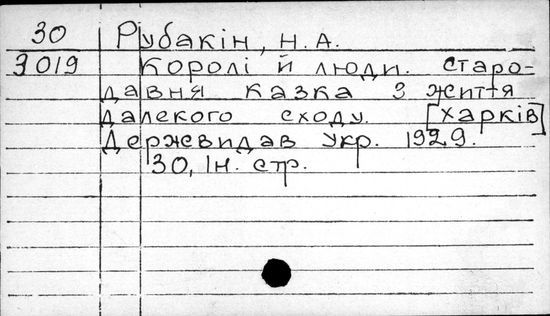 30 Рубакін, Н.А.
3019 Королі й люди. старо-
давня казка з життя
далекого сходу. [Харків]
Держвидав Укр. 1929.
30, Ін. стр.